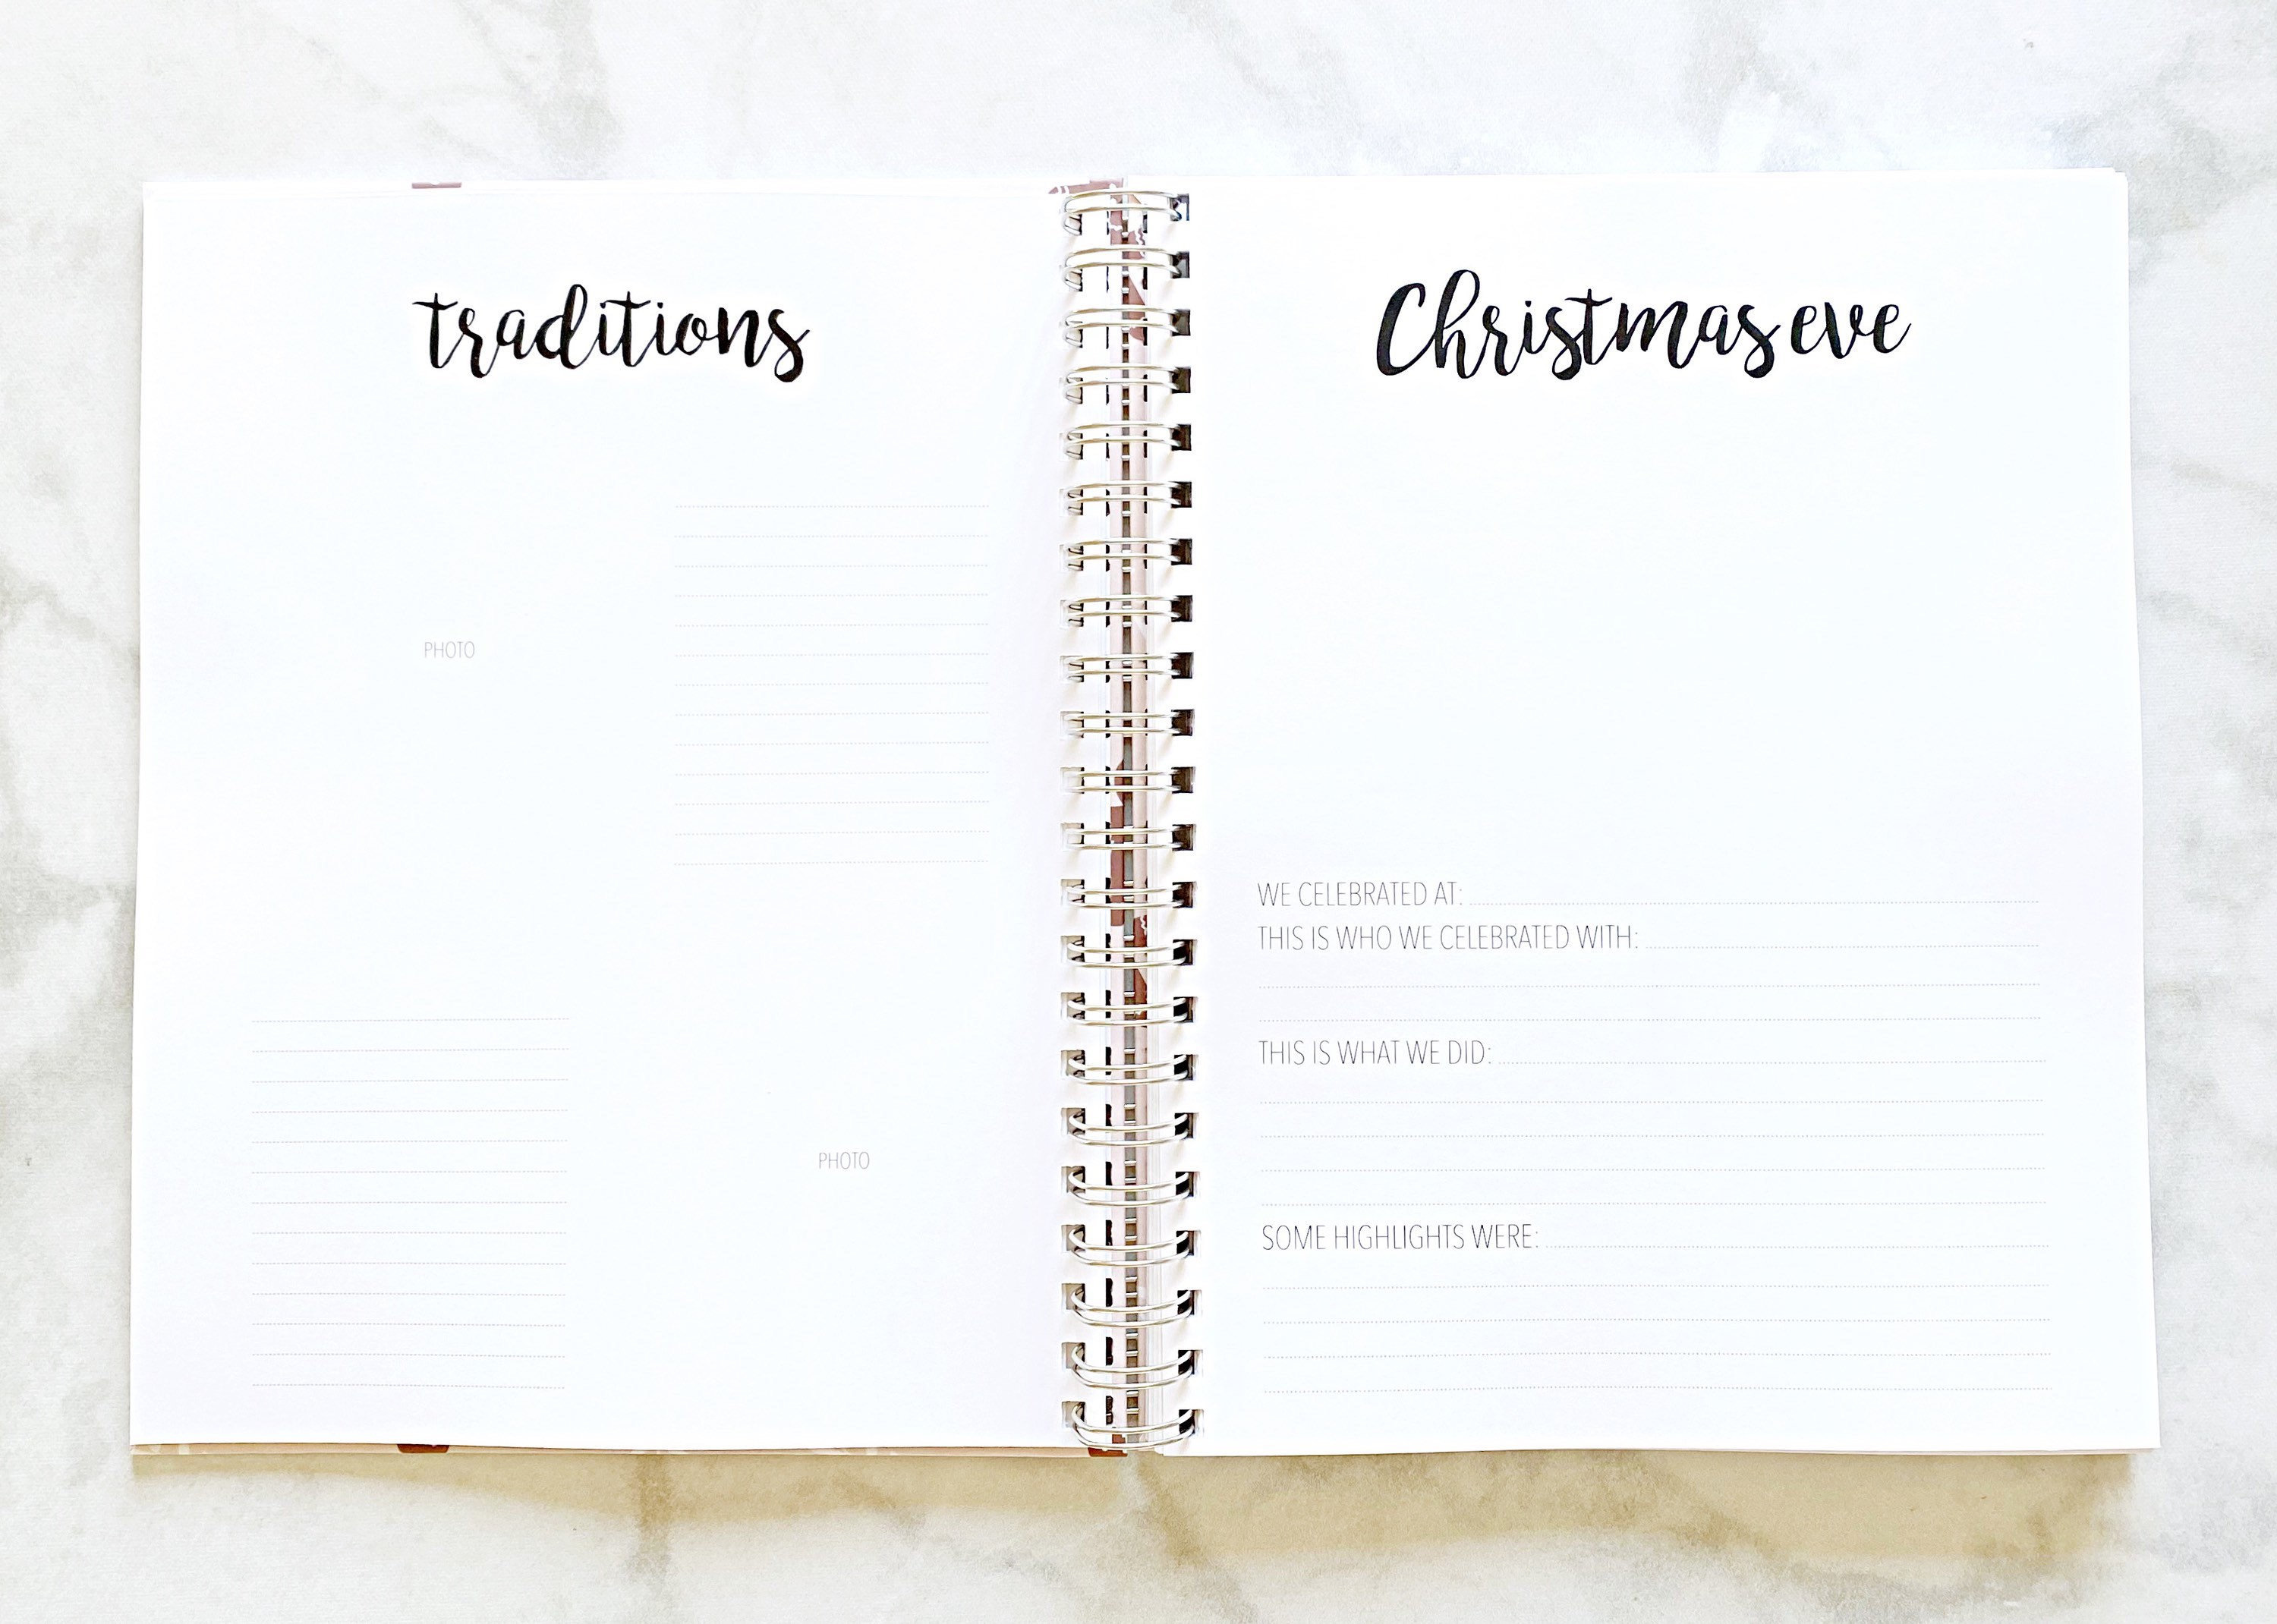 traditions
PHOTO
PHOTO
Christmas eve
WE CELEBRATED AT:
THIS IS WHO WE CELEBRATED WITH:
THIS IS WHAT WE DID:
SOME HIGHLIGHTS WERE: